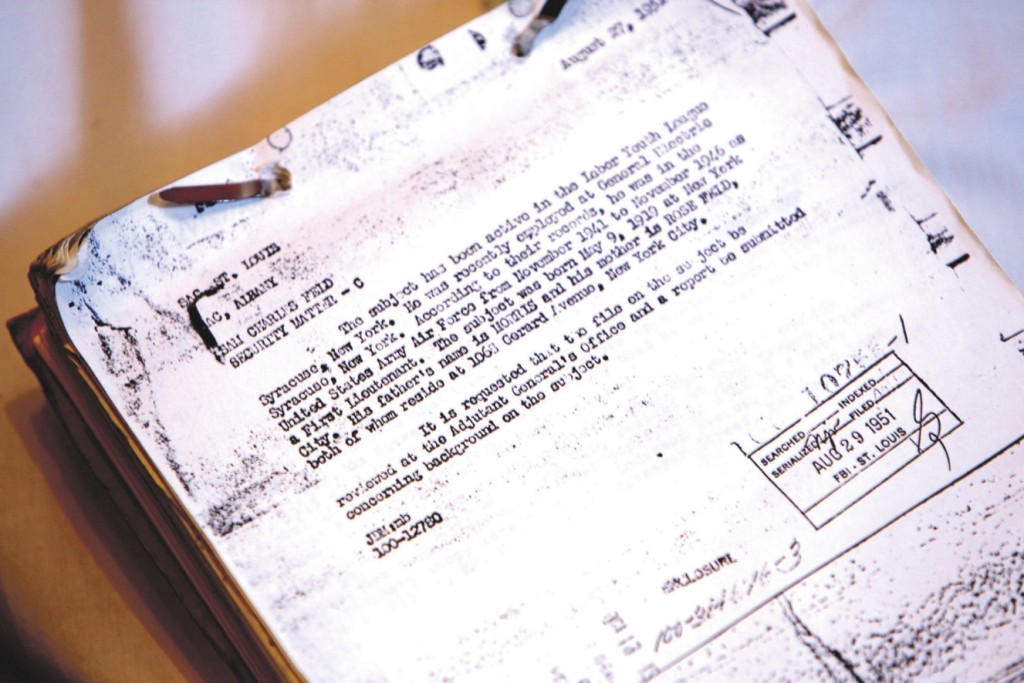 August 27, 195
SAC, ST. LOUIS
AC, ALBANY
SAM CHARLES FELD
SECURITY MATTER - C
The subject has been active in the Labor Youth League
Syracuse, New York. He was recently employed at General Electric
Syracuse, New York. According to their records, he was in the
United States Army Air Force from November 1941 to November 1946 as
a First Lieutenant. The subject was born May 9, 1919 at New York
City. His father's name is MORRIS and his mother is ROSE FELD,
both of whom reside at Gerard Avenue, New York City.
It is requested that the file on the subject be
reviewed at the Adjutant General's Office and a report to submitted
concerning background on the subject.
:mb
100-12780
SEARCHED INDEXED
SERIALIZED FILED
AUG 29 1951
FBI - ST. LOUIS
ENCLOSURE